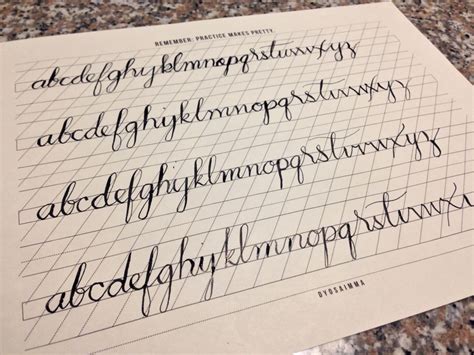 REMEMBER: PRACTICE MAKES PRETTY
abcdefghijklmnopqrstuvwxyz
abcdefghijklmnopqrstuvwxyz
abcdefghijklmnopqrstuvwxyz
abcdefghijklmnopqrstuvwxyz
DYOSAIMMA